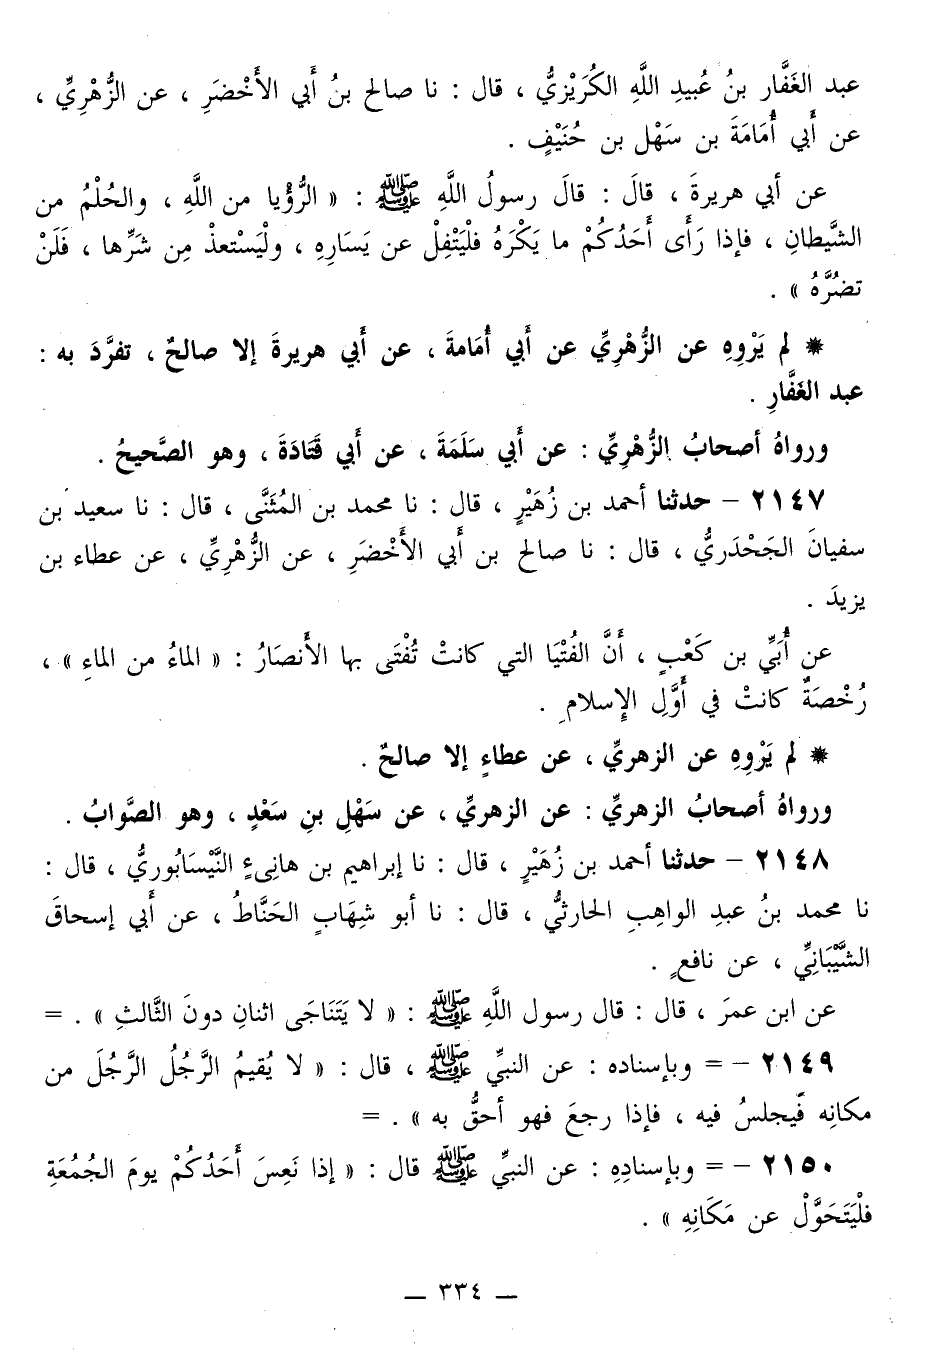 عبد الغَفَّار بنُ عُبيدِ اللَّهِ الكُرَيْزيُّ ، قال : نا صالح بنُ أَبي الأَخْضَرِ ، عن الزُّهْرِيِّ ،
عن أَبي أُمَامَةَ بن سَهْل بن حُنَيْفٍ .
عن أبي هريرةَ ، قالَ : قالَ رسولُ اللَّهِ ﷺ : « الرُّؤْيا من اللَّهِ ، والحُلْمُ من
الشَّيطانِ ، فإذا رَأَى أَحَدُكُمْ ما يَكْرَهُ فلْيَتْفِلْ عن يَسَارِهِ ، ولْيَستعذْ مِن شَرِّها ، فَلَنْ
تضُرَّهُ » .
* لم يَرْوِهِ عن الزُّهْرِيِّ عن أَبي أُمَامةَ ، عن أَبي هريرةَ إلا صالحٌ ، تفرَّدَ به :
عبد الغَفَّارِ .
ورواهُ أصحابُ الزُّهْرِيِّ : عن أَبي سَلَمَةَ ، عن أَبي قَتَادَةَ ، وهو الصَّحيحُ .
٢١٤٧ – حدثنا أحمد بن زُهَيْرٍ ، قال : نا محمد بن المُثَنَّى ، قال : نا سعيد بن
سفيانَ الجَحْدَريُّ ، قال : نا صالح بن أَبي الأَخْضَرِ ، عن الزُّهْرِيِّ ، عن عطاء بن
يزيدَ .
عن أُبَيِّ بن كَعْبٍ ، أَنَّ الفُتْيَا التي كانتْ تُفْتَى بها الأَنصَارُ : « الماءُ من الماءِ » ،
رُخْصَةٌ كانتْ في أَوَّلِ الإِسلامِ .
* لم يَرْوِهِ عن الزهريِّ ، عن عطاءٍ إلا صالحٌ .
ورواهُ أصحابُ الزهريِّ : عن الزهريِّ ، عن سَهْلِ بنِ سَعْدٍ ، وهو الصَّوابُ .
٢١٤٨ – حدثنا أحمد بن زُهَيْرٍ ، قال : نا إبراهيم بن هانىءٍ النَّيْسَابُوريُّ ، قال :
نا محمد بنُ عبدِ الواهِبِ الحارثيُّ ، قال : نا أبو شِهَابٍ الحَنَّاطُ ، عن أَبي إسحاقَ
الشَّيْبَانِيِّ ، عن نافعٍ .
عن ابن عمرَ ، قال : قال رسول اللَّهِ ﷺ : « لا يَتَنَاجَى اثنانِ دونَ الثَّالثِ » . =
٢١٤٩ – = وبإسناده : عن النبيِّ ﷺ ، قال : « لا يُقيمُ الرَّجُلُ الرَّجُلَ من
مكانِه فَيجلسُ فيه ، فإذا رجعَ فهو أحقُّ به » . =
٢١٥٠ – = وبإسنادِهِ : عن النبيِّ ﷺ قال : « إذا نَعِسَ أَحَدُكُمْ يومَ الجُمُعَةِ
فلْيَتَحَوَّلْ عن مَكَانِهِ » .
— ٣٣٤ —